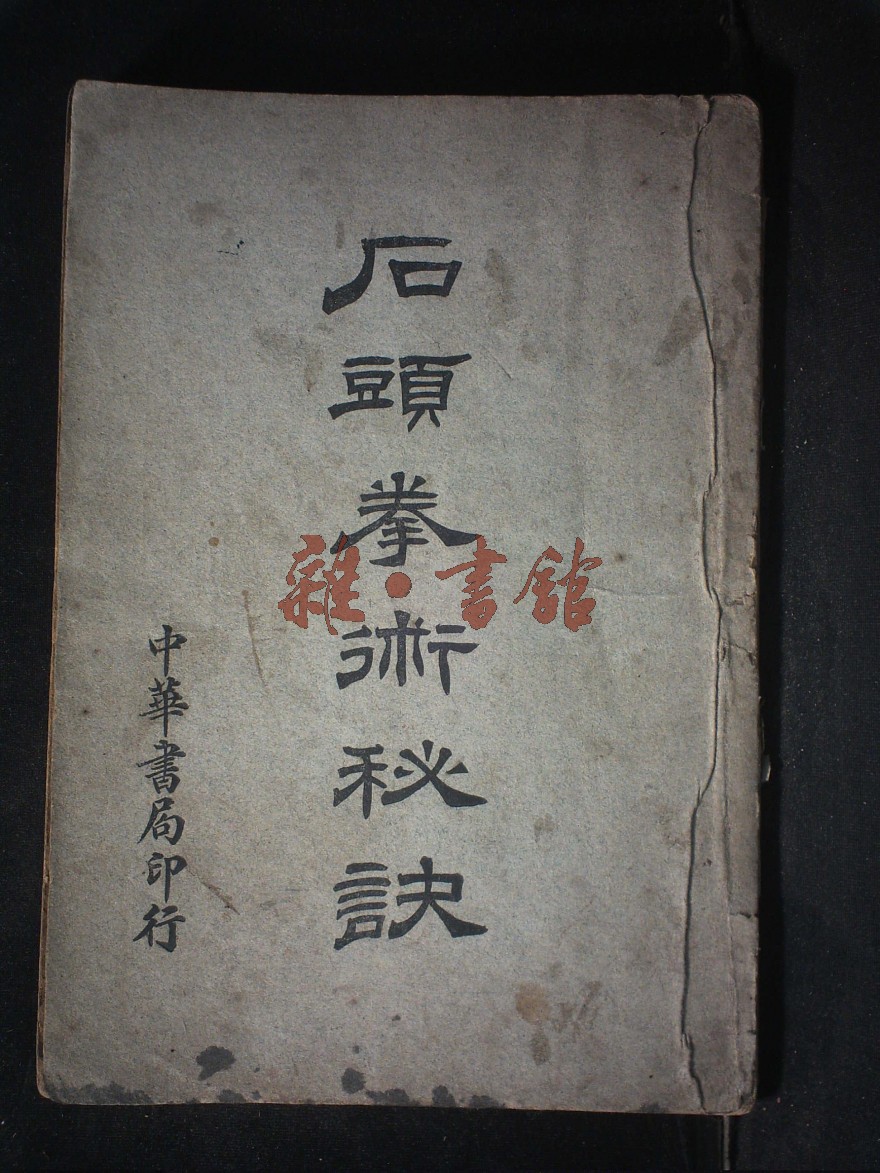 石頭拳術秘訣
中華書局印行
雜·書館